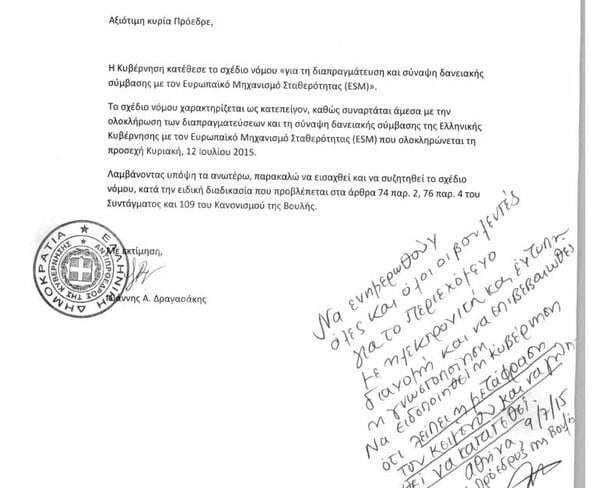 Αξιότιμη κυρία Πρόεδρε,
Η Κυβέρνηση κατέθεσε το σχέδιο νόμου «για τη διαπραγμάτευση και σύναψη δανειακής
σύμβασης με τον Ευρωπαϊκό Μηχανισμό Σταθερότητας (ESM)».
Το σχέδιο νόμου χαρακτηρίζεται ως κατεπείγον, καθώς συναρτάται άμεσα με την
ολοκλήρωση των διαπραγματεύσεων και τη σύναψη δανειακής σύμβασης της Ελληνικής
Κυβέρνησης με τον Ευρωπαϊκό Μηχανισμό Σταθερότητας (ESM) που ολοκληρώνεται τη
προσεχή Κυριακή, 12 Ιουλίου 2015.
Λαμβάνοντας υπόψη τα ανωτέρω, παρακαλώ να εισαχθεί και να συζητηθεί το σχέδιο
νόμου, κατά την ειδική διαδικασία που προβλέπεται στα άρθρα 74 παρ. 2, 76 παρ. 4 του
Συντάγματος και 109 του Κανονισμού της Βουλής.
Με εκτίμηση,
Ιωάννης Α. Δραγασάκης
ΕΛΛΗΝΙΚΗ ΔΗΜΟΚΡΑΤΙΑ
ΑΝΤΙΠΡΟΕΔΡΟΣ ΤΗΣ ΚΥΒΕΡΝΗΣΗΣ
Να ενημερωθούν
όλες και όλοι οι βουλευτές
για το περιεχόμενο
με ηλεκτρονική και έντυπη
διανομή και να επιβεβαιωθεί
η γνωστοποίηση.
Να ειδοποιηθεί η κυβέρνηση
ότι λείπει η μετάφραση
του κειμένου και να
να κατατεθεί
Αθήνα, 9/7/15
Πρόεδρος της Βουλή